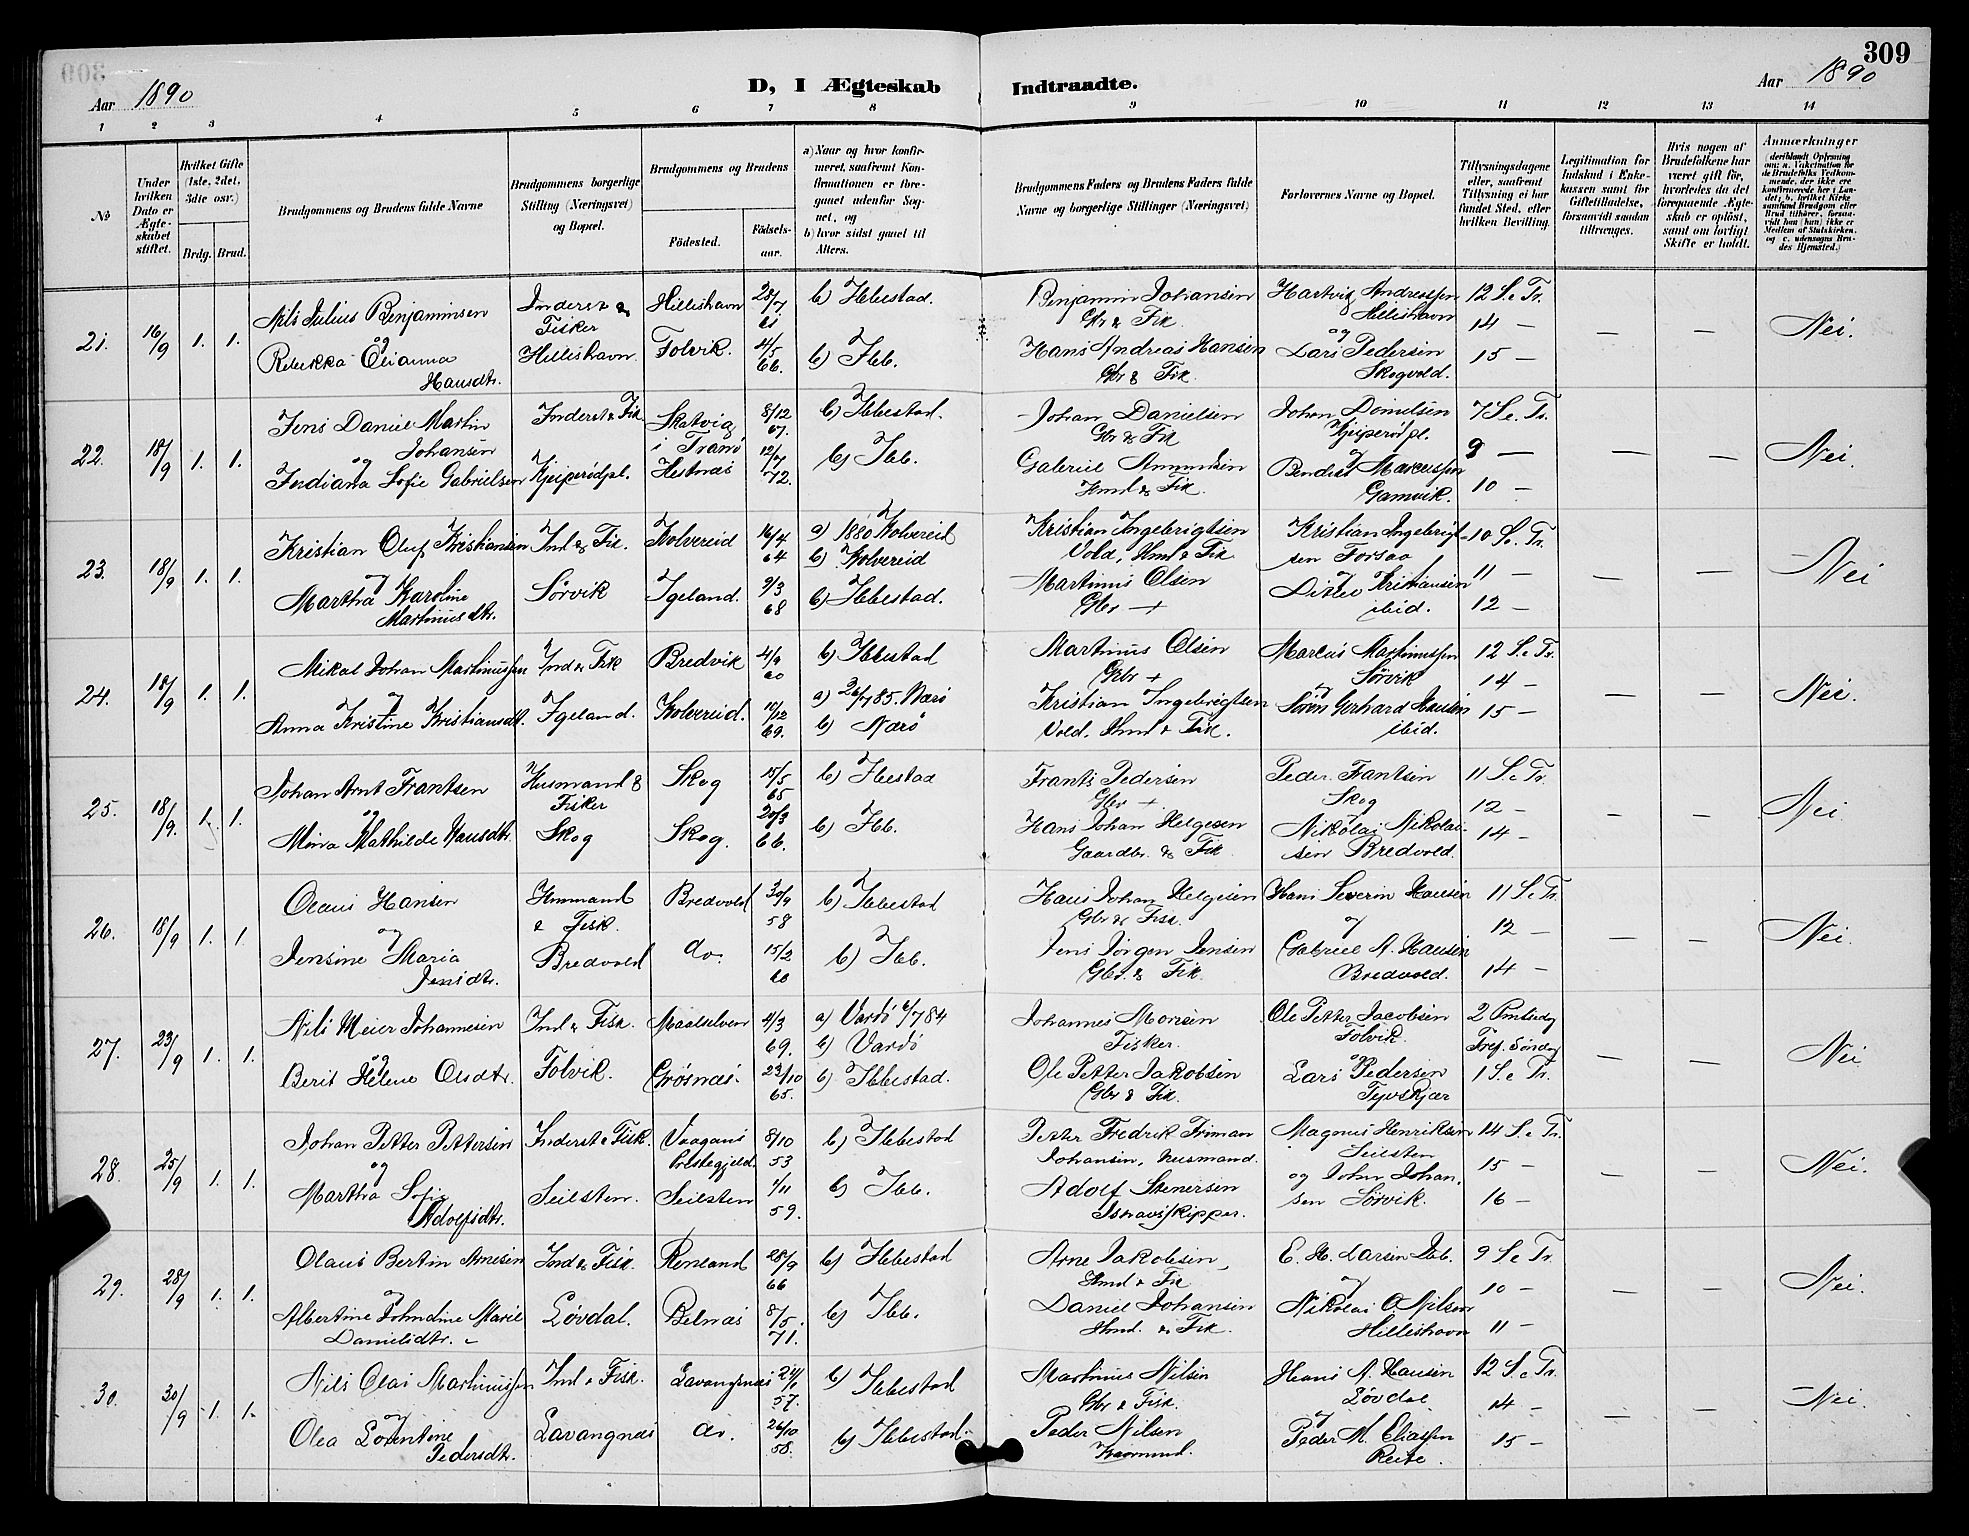 309
Aar 1890
D, I Ægteskab Indtraadte.
Aar 1890
1 2 3 4 5 6 7 8 9 10 11 12 13 14
No
Under hvilken Dato er Ægteskabet stiftet.
Hvilket Gifte (1ste, 2det, 3die osv.)
Brdg. Brud.
Brudgommens og Brudens fulde Navne
Brudgommens borgerlige Stilling (Næringsvei) og Bopæl.
Brudgommens og Brudens
Fødested.
Fødselsaar.
a) Naar og hvor konfirmeret, saafremt Konfirmationen er foregaaet udenfor Sognet, og
b) hvor sidst gaaet til Alters.
Brudgommens Faders og Brudens Faders fulde Navne og borgerlige Stillinger (Næringsvei)
Forlovernes Navne og Bopæl.
Tillysningsdagene eller, saafremt Tillysning ei har fundet Sted, efter hvilken Bevilling.
Legitimation for Indskud i Enkekassen samt for Giftetilladelse, forsaavidt saadan tiltrænges.
Hvis nogen af Brudefolkene har været gift før, hvorledes da det foregaaende Ægteskab er opløst, samt om lovligt Skifte er holdt.
Anmærkninger
(deriblandt Oplysning om: a. Vakcination for de Brudefolks Vedkommende, der ikke ere konfirmerede her i Landet; b. hvilket Kirkesamfund Brudgom eller Brud tilhører, forsaavidt han (hun) ikke er Medlem af Statskirken, og c. udensogns Brudes Hjemsted.)
21. 16/9 1. 1.
Nils Julius Benjaminsen
og
Rebekka Elianna
Hansdtr.
Inderst &
Fisker
Hilleshavn.
Hilleshavn 28/7 61
Folvik. 4/5 66.
b) Ibbestad.
b) Ibb.
Benjamin Johansen
Gbr & Fik.
Hans Andreas Hansen
Gbr & Fik.
Hartvig Andreassen
Hilleshavn
og
Lars Pedersen
Skogvold.
12 S. e Tr.
14 —
15 —
— —
Nei.
22. 18/9 1. 1.
Jens Daniel Martin
Johansen
og
Indiana Sofie Gabrielsen
Inderst & Fik
Kjeiperødpl.
Skatvig
i Tranø
8/12 67.
Hestnæs 12/7 72.
b) Ibbestad.
b) Ibb.
Johan Danielsen
Gbr & Fik
Gabriel Amundsen
Hmd & Fik.
Johan Danielsen
Kjeiperødpl.
og
Bendix Marcussen
Gamvik.
7 S. e. Tr.
9 —
10 —
— —
Nei.
23. 18/9 1. 1.
Kristian Oluf Kristiansen
og
Martha Karoline
Martinusdtr.
Ind & Fik.
Sørvik
Kolvereid 16/4 64
Igeland. 9/3 68
a) 1880 Kolvereid
b) Kolvereid
b) Ibbestad.
Kristian Ingebrigtsen
Vold, Hmd & Fik
Martinus Olsen
Gbr +
Kristian Ingebrigt-
sen Forsaa
og
Ditlev Kristiansen
ibid.
10 S. e. Tr.
11 —
12 —
— —
Nei
24. 18/9 1. 1.
Mikal Johan Martinussen
og
Anna Kristine Kristiansdt.
Ind & Fik
Igeland.
Bredvik 4/9 60
Kolvereid. 11/12 69.
b) Ibbestad
a) 26/7 85. Nærø
b) Nærø
Martinus Olsen
Gbr +
Kristian Ingebrigtsen
Vold. Hmd & Fik.
Marcus Martinussen
Sørvik
og
Søren Gerhard Hansen
ibid.
12 S. e Tr.
14 —
15 —
— —
Nei.
25. 18/9. 1. 1.
Johan Arnt Frantsen
og
Mina Mathilde Hansdtr.
Husmand &
Fisker
Skog
Skog 15/5 65
Skog. 20/3 66.
b) Ibestad
b) Ibb.
Frants Pedersen
Gbr +
Hans Johan Helgesen
Gaardbr. & Fik
Peder Frantsen
Skog
og
Nikolai Nikolai-
sen Bredvold.
11 S. e Tr.
12 —
14 —
— —
Nei
26. 18/9 1. 1
Olaus Hansen
og
Jensine Maria
Jensdtr.
Husmand
& Fisk.
Bredvold
Bredvold 30/9 58
do. 15/2 60
b) Ibbestad
b) Ibb.
Hans Johan Helgesen
Gbr & Fisk.
Jens Jørgen Jensen
Gbr. & Fik.
Hans Severin Hansen
og
Gabriel A. Hansen
Bredvold.
11 S. e Tr.
12 —
14 —
— —
Nei.
27. 23/9 1. 1.
Nils Meier Johannesen
og
Berit Helene Olsdtr.
Ind & Fisk.
Folvik.
Maalselven 4/3 69.
Grøsnæs. 23/10 65.
a) Vardø 6/7 84
b) Vardø
b) Ibbestad.
Johannes Morisen
Fisker.
Ole Petter Jakobsen
Gbr & Fik.
Ole Petter Jacobsen
Folvik.
og
Lars Pedersen
Tyvskjær
2 Pintsedg
Tref. Søndag
1 S. e Tr.
— —
Nei
28. 25/9 1. 1.
Johan Petter Pettersen
og
Martha Sofie
Adolfsdtr.
Inderst & Fisk.
Seilsten.
Vaagans
Prestegjeld.
8/10 53
Seilsten 1/11 59.
b) Ibbestad
b) Ibb.
Petter Fredrik Friman
Johansen, Husmand.
Adolf Stenersen
Ishavsskipper.
Magnus Henriksen
Seilsten
og Johan Johan-
sen Sørvik.
14 S. e Tr.
15 —
16 —
— —
Nei.
29. 28/9 1. 1.
Olaus Bertin Arnesen
og
Albertine Johndine Marie
Danielsdtr.
Ind & Fisk.
Løvdal.
Renland 28/9 66
Belnæs 8/5. 71.
b) Ibbestad
b) Ibb.
Arne Jakobsen
Hmd & Fik
Daniel Johansen
Hmd. & Fik.
E. H. Larsen Ibb.
og
Nikolai O. Nilsen
Hilleshavn
9 S. e Tr.
10 —
11 —
— —
Nei.
30. 30/9 1. 1.
Nils Olai Martinussen
og
Olea Lorentine
Pedersdtr.
Ind & Fisk.
Lavangnæs
Lavangsnæs 57.
do. 26/10 58.
b) Ibbestad
b) Ibbestad.
Martinus Nilsen
Gbr & Fisk.
Peder Nilsen
Hans A. Hansen
Løvdal
og
Peder M. Eliassen
Reite.
12 S. e Tr.
14 —
15 —
— —
Nei.